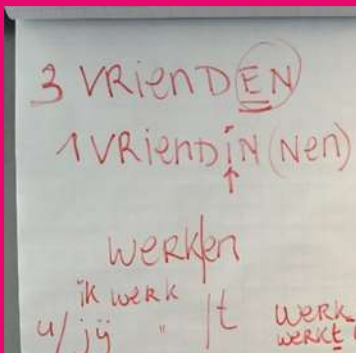 3 VRIENDEN
1 VRIENDIN (NEN)
werk/en
ik werk
u/jij " /t werk
werkt